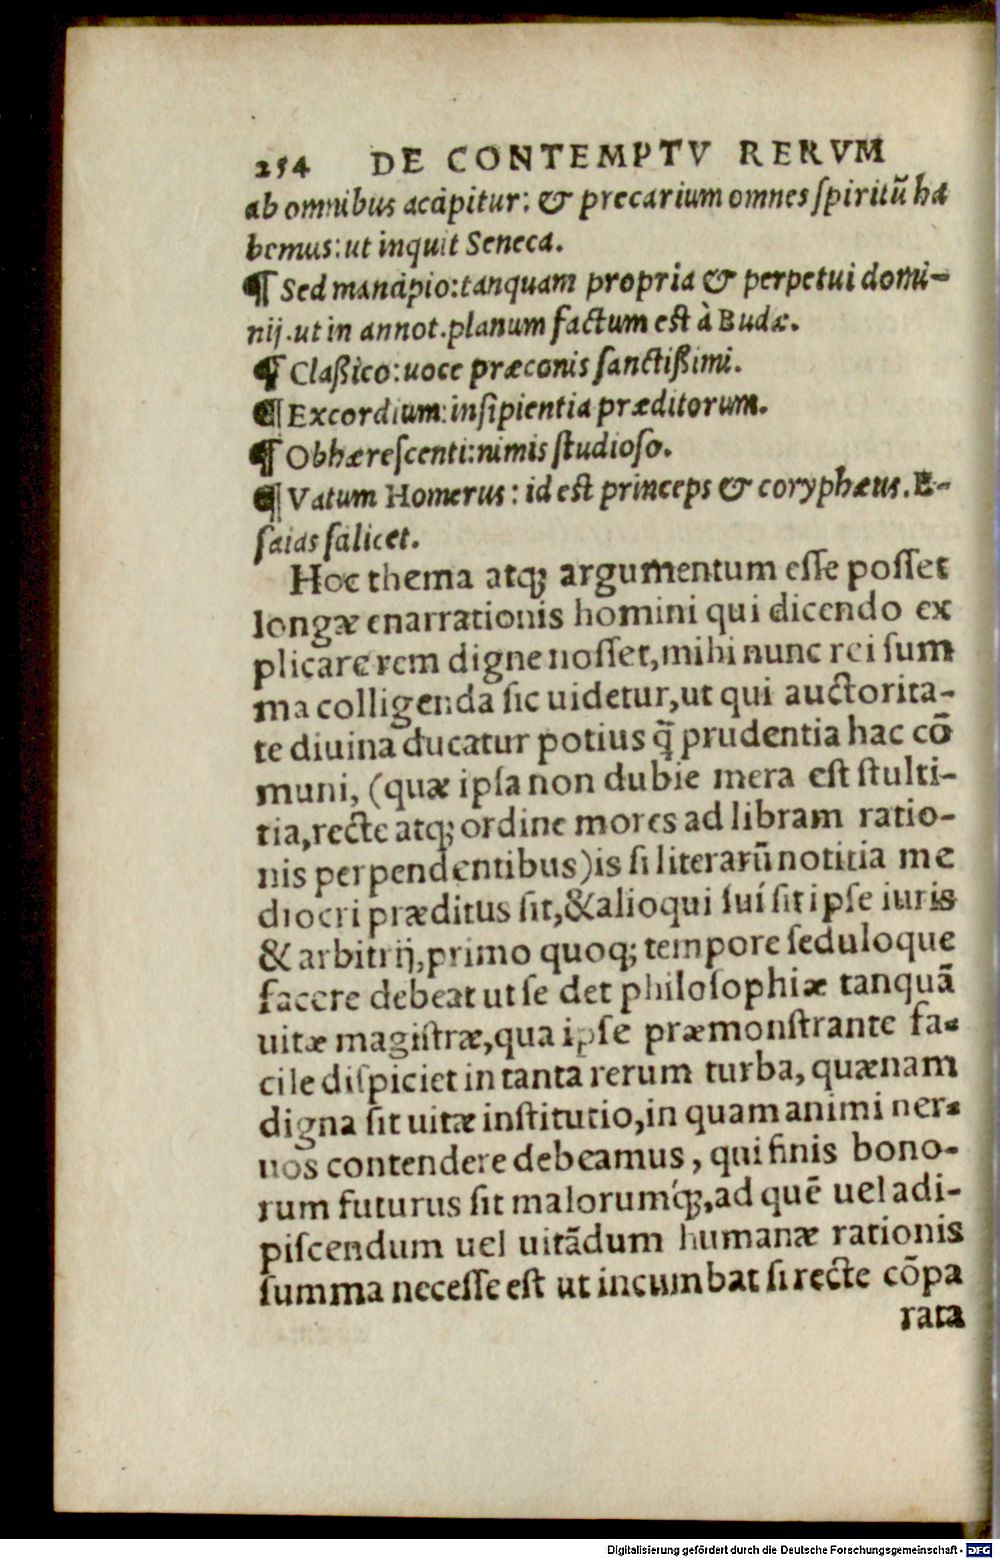 254 DE CONTEMPTV RERVM
ab omnibus accipitur: & precarium omnes ſpiritũ ha
bemus: ut inquit Seneca.
¶ Sed mancipio: tanquam propria & perpetui domi-
nij. ut in annot. planum factum est à Budæ.
¶ Claßico: uoce præconis ſanctißimi.
¶ Excordium: inſipientia præditorum.
¶ Obhæreſcenti: nimis ſtudioſo.
¶ Vatum Homerus: id est princeps & coryphæus. E-
ſaias ſcilicet.
Hoc thema atq; argumentum eſſe poſſet
longæ enarrationis homini qui dicendo ex
plicare rem digne noſſet, mihi nunc rei ſum
ma colligenda ſic uidetur, ut qui auctorita-
te diuina ducatur potius q̃ prudentia hac cõ
muni, (quæ ipſa non dubie mera eſt ſtulti-
tia, recte atq; ordine mores ad libram ratio-
nis perpendentibus) is ſi literarũ notitia me
diocri præditus ſit, & alioqui ſuí ſit ipſe iuris
& arbitrij, primo quoq; tempore ſeduloque
facere debeat ut ſe det philoſophiæ tanquã
uitæ magiſtræ, qua ipſe præmonſtrante fa-
cile diſpiciet in tanta rerum turba, quænam
digna ſit uitæ inſtitutio, in quam animi ner-
uos contendere debeamus, qui finis bono-
rum futurus ſit malorumq́;, ad quẽ uel adi-
piſcendum uel uitãdum humanæ rationis
ſumma neceſſe eſt ut incumbat ſi recte cõpa
rata
Digitalisierung gefördert durch die Deutsche Forschungsgemeinschaft - DFG